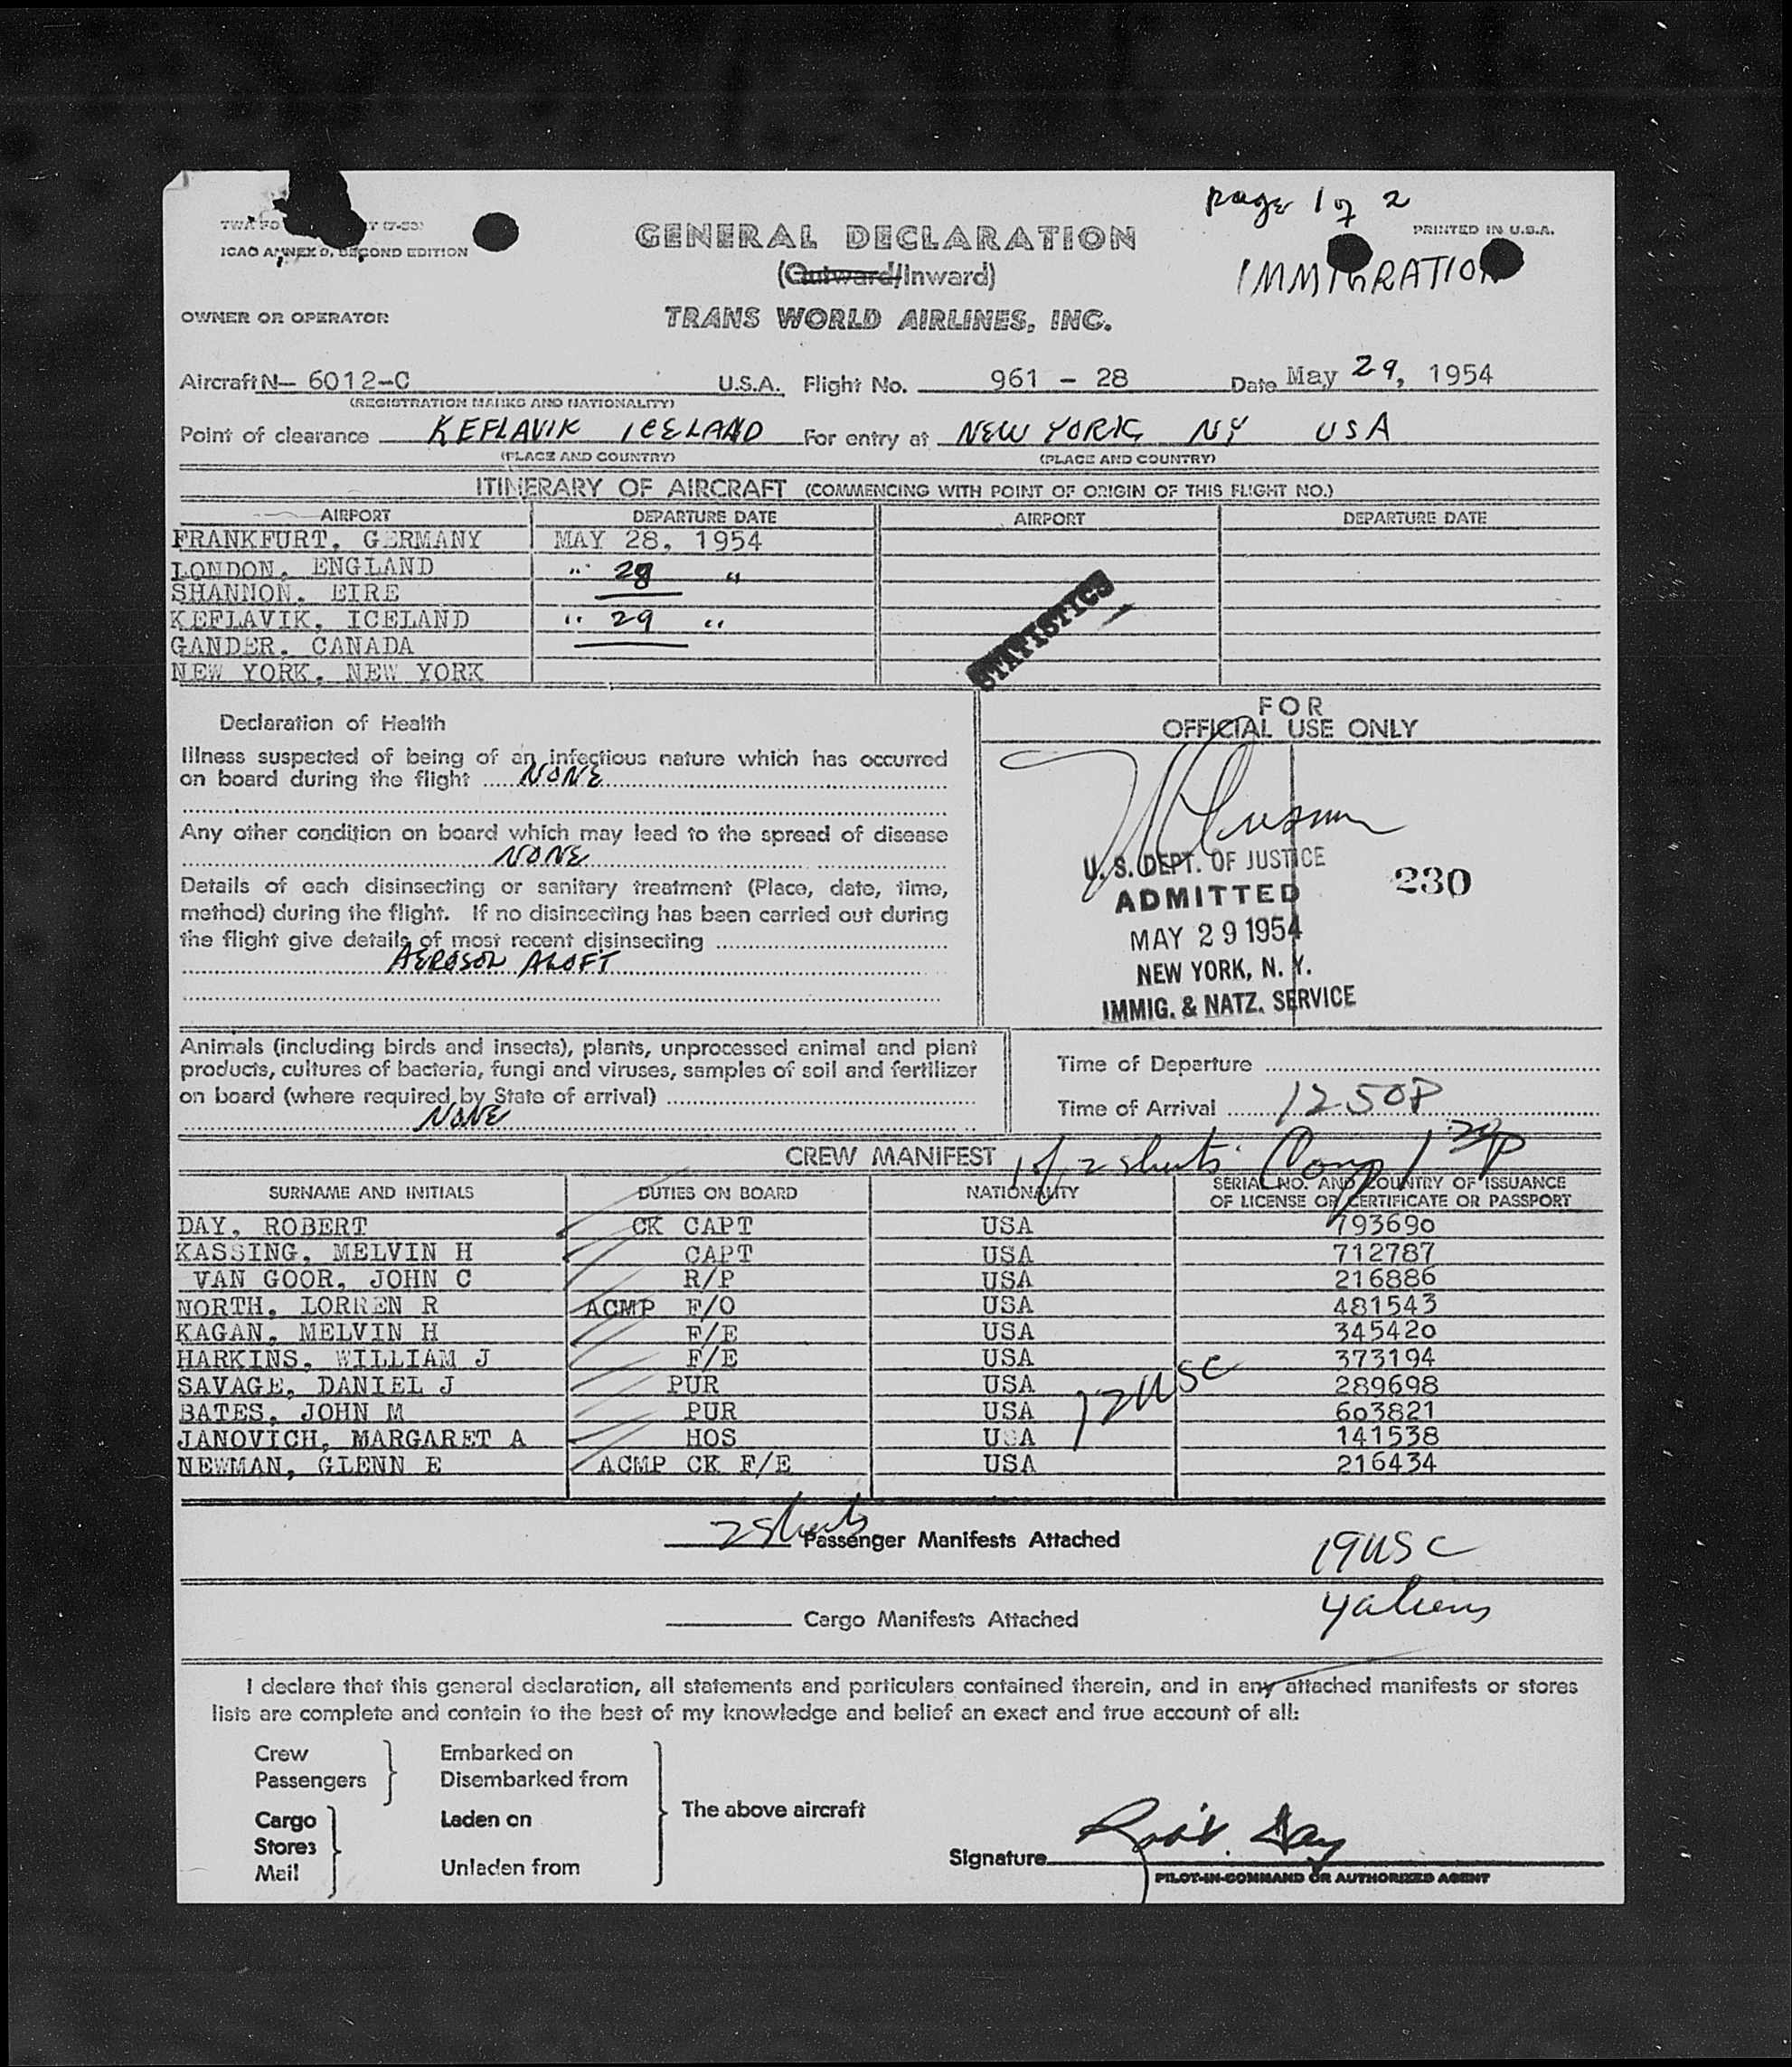 page 1 of 2
TWA FO T (7-53)
PRINTED IN U.S.A.
ICAO ANNEX 9, SECOND EDITION
GENERAL DECLARATION
(Outward/Inward)
IMMIGRATION
OWNER OR OPERATOR
TRANS WORLD AIRLINES, INC.
Aircraft N- 6012-C U.S.A. Flight No. 961 - 28 Date May 29, 1954
(REGISTRATION MARKS AND NATIONALITY)
Point of clearance KEFLAVIK ICELAND For entry at NEW YORK, NY USA
(PLACE AND COUNTRY) (PLACE AND COUNTRY)
ITINERARY OF AIRCRAFT (COMMENCING WITH POINT OF ORIGIN OF THIS FLIGHT NO.)
AIRPORT DEPARTURE DATE AIRPORT DEPARTURE DATE
FRANKFURT, GERMANY MAY 28, 1954
LONDON, ENGLAND " 28 "
SHANNON, EIRE
KEFLAVIK, ICELAND " 29 "
GANDER, CANADA
NEW YORK, NEW YORK
STATISTICS
Declaration of Health
Illness suspected of being of an infectious nature which has occurred
on board during the flight NONE
Any other condition on board which may lead to the spread of disease
NONE
Details of each disinsecting or sanitary treatment (Place, date, time,
method) during the flight. If no disinsecting has been carried out during
the flight give details of most recent disinsecting
AEROSOL ALOFT
FOR
OFFICIAL USE ONLY
U. S. DEPT. OF JUSTICE
ADMITTED
230
MAY 29 1954
NEW YORK, N. Y.
IMMIG. & NATZ. SERVICE
Animals (including birds and insects), plants, unprocessed animal and plant
products, cultures of bacteria, fungi and viruses, samples of soil and fertilizer
on board (where required by State of arrival)
NONE
Time of Departure
Time of Arrival 1250P
CREW MANIFEST 1 of 2 sheets Comp 1 30 P
SURNAME AND INITIALS DUTIES ON BOARD NATIONALITY SERIAL NO. AND COUNTRY OF ISSUANCE
OF LICENSE OR CERTIFICATE OR PASSPORT
DAY, ROBERT CK CAPT USA 793690
KASSING, MELVIN H CAPT USA 712787
VAN GOOR, JOHN C R/P USA 216886
NORTH, LORREN R ACMP F/O USA 481543
KAGAN, MELVIN H F/E USA 345420
HARKINS, WILLIAM J F/E USA 373194
SAVAGE, DANIEL J PUR USA 289698
BATES, JOHN M PUR USA 603821
JANOVICH, MARGARET A HOS USA 141538
NEWMAN, GLENN E ACMP CK F/E USA 216434
12 USC
2 sheets Passenger Manifests Attached
19 USC
Cargo Manifests Attached
4 aliens
I declare that this general declaration, all statements and particulars contained therein, and in any attached manifests or stores
lists are complete and contain to the best of my knowledge and belief an exact and true account of all:
Crew Embarked on
Passengers Disembarked from
Cargo Laden on
Stores
Mail Unladen from
The above aircraft
Signature Rob't. Day
PILOT-IN-COMMAND OR AUTHORIZED AGENT